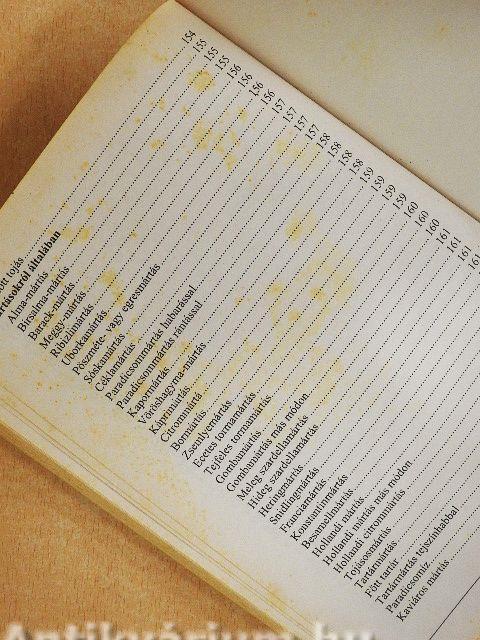 ott tojás
ártásokról általában
Alma-mártás
Birsalma-mártás
Barack-mártás
Meggy-mártás
Ribizlimártás
Uborkamártás
Pöszméte- vagy egresmártás
Sóskamártás
Céklamártás
Paradicsommártás habarással
Paradicsommártás rántással
Kapormártás
Vöröshagyma-mártás
Káprimártás
Citrommártá
Bormártás
Zsemlyemártás
Ecetes tormamártás
Tejfeles tormamártás
Gombamártás
Gombamártás más módon
Meleg szardellamártás
Hideg szardellamártás
Heringmártás
Snidlingmártás
Franciamártás
Konstantinmártás
Besamelmártás
Hollandi mártás
Hollandi mártás más módon
Hollandi citrommártás
Tojásosmártás
Tartármártás
Főtt tartár
Tartármártás tejszínhabbal
Paradicsomíz
Kaviáros mártás
154
155
155
155
156
156
156
156
157
157
157
157
158
158
158
158
159
159
159
159
160
160
160
161
161
161
161
Antikvárium.hu